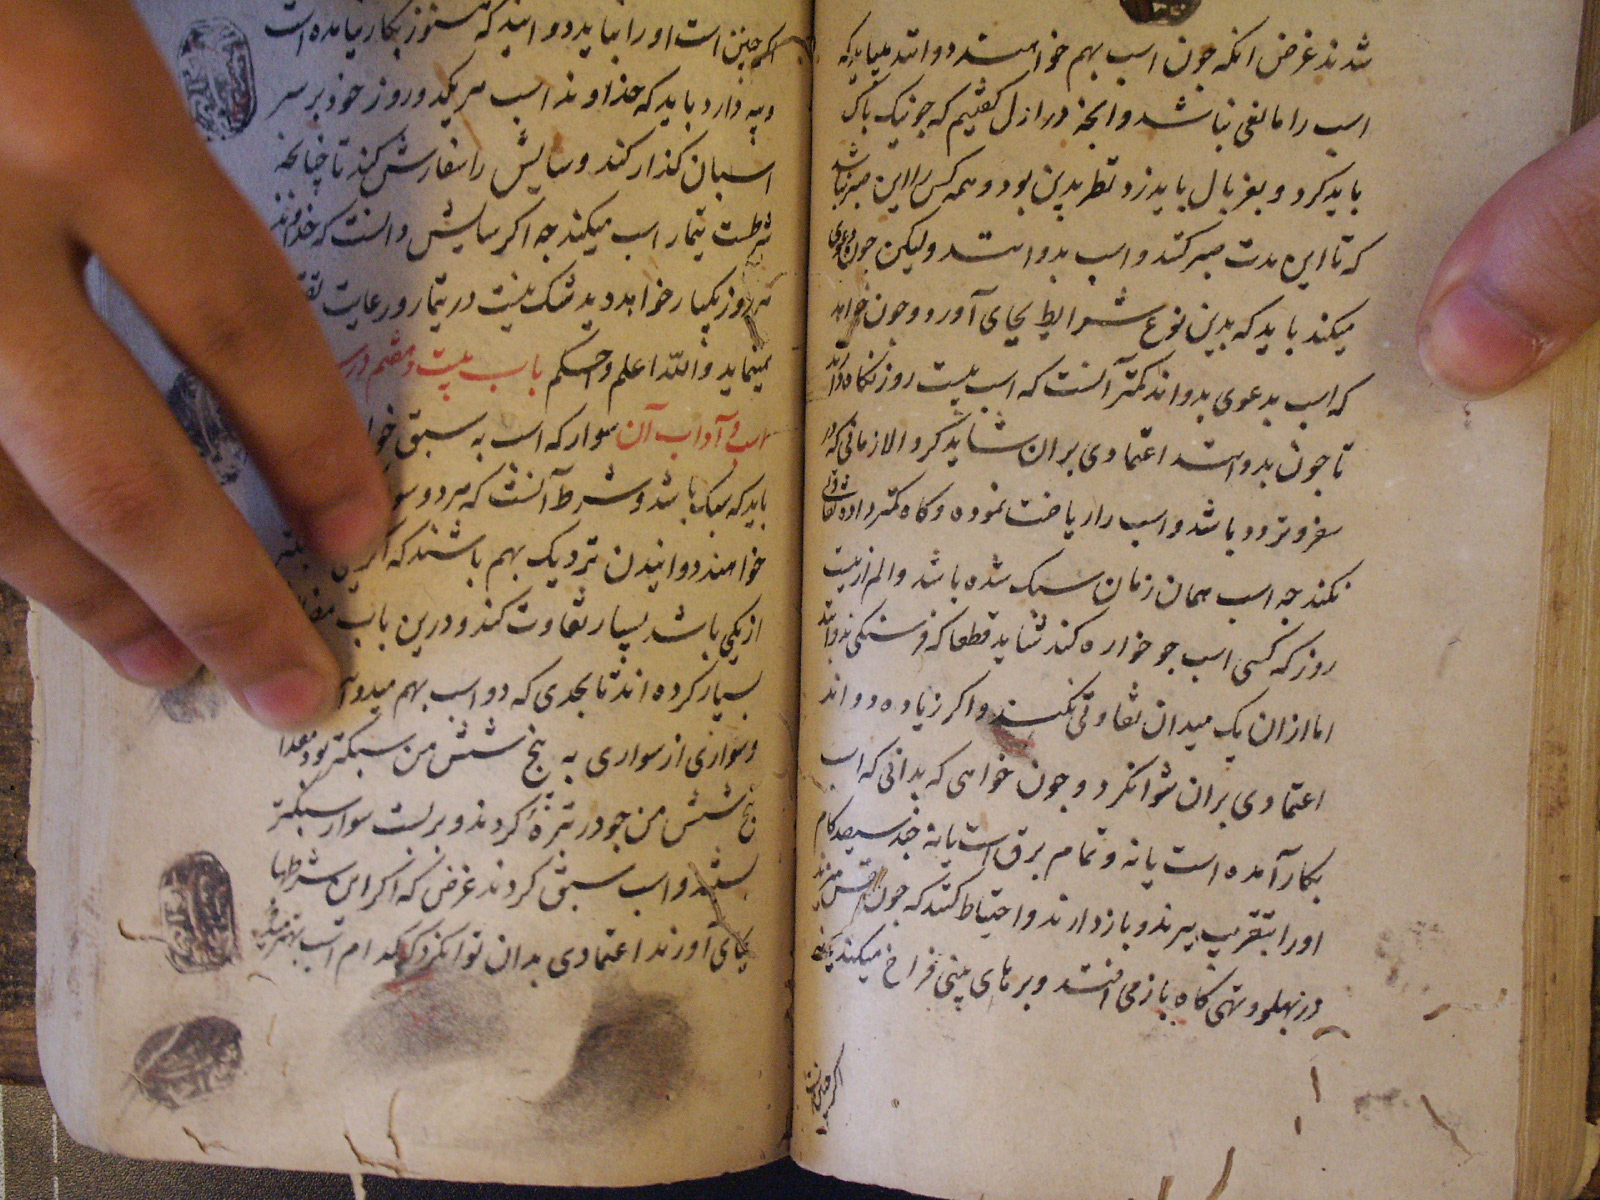 شدند غرض انکه چون اسب بهم خواهند دوانند میباید که
اسب را مانعی نباشد و انچه در ازل کفتیم که جو نیک پاک
باید کرد و بغربال باید زد نظر بدین بود و همه کس را این صبر نباشد
که تا این مدت صبر کنند و اسب بدوانند ولیکن چون دعوی
میکند باید که بدین نوع شرایط بجای آورد و چون خواهد
که اسب بدعوی بدواند کمتر آنست که اسب بیست روز نکاه دارند
تا چون بدوانند اعتمادی بران شاید کرد الا زمانی که در
سفر و تردد باشد و اسب را ریاضت نموده و کاه کمتر داده تفاوتی
نکند چه اسب همان زمان سبک شده باشد و الم از بیست
روز که کسی اسب جو خواره کند نشاید قطعا که فرسنکی بدواند
اما ازان یک میدان تفاوتی نکند و اکر زیاده دواند
اعتمادی بران نتوان کرد و چون خواهی که بدانی که اسب
بکار آمده است یا نه و تمام برق است یا نه چند سیصد کام
او را بتقریب ببرند و بازدارند و احتیاط کنند که چون نفس میزند
در پهلو و تهی کاه باز می افتد و برهای بینی فراخ میکند یا نه
اکر چنین است
اکر چنین است او را نباید دوانید که هنوز بکار نیامده است
و پیه دارد باید که خداوند اسب هر یکدو روز خود بر سر
اسبان کذار کند و سایس را سفارش کند تا چنانچه
شرطست تیمار اسب میکند چه اکر سایس دانست که خداوند
هر روز یکبار خواهد دید شک نیست در تیمار و رعایت
مینماید والله اعلم واحکم باب بیست و هفتم در
اسب و آداب آن سوار که اسب به سبق
باید که سبک باشد و شرط آنست که هر دو
خواهند دوانیدن نزدیک بهم باشند که
از یکی باشد بسیار تفاوت کند و درین باب
بسیار کرده اند تا بحدی که دو اسب بهم
و سواری از سواری به پنج شش من سبکتر بود
پنج شش من جو در توبره کردند و بر پشت سوار سبکتر
بستند و اسب سبق کردند غرض که اکر این شرطها
بجای آورند اعتمادی بدان توان کرد که کدام اسب بهتر